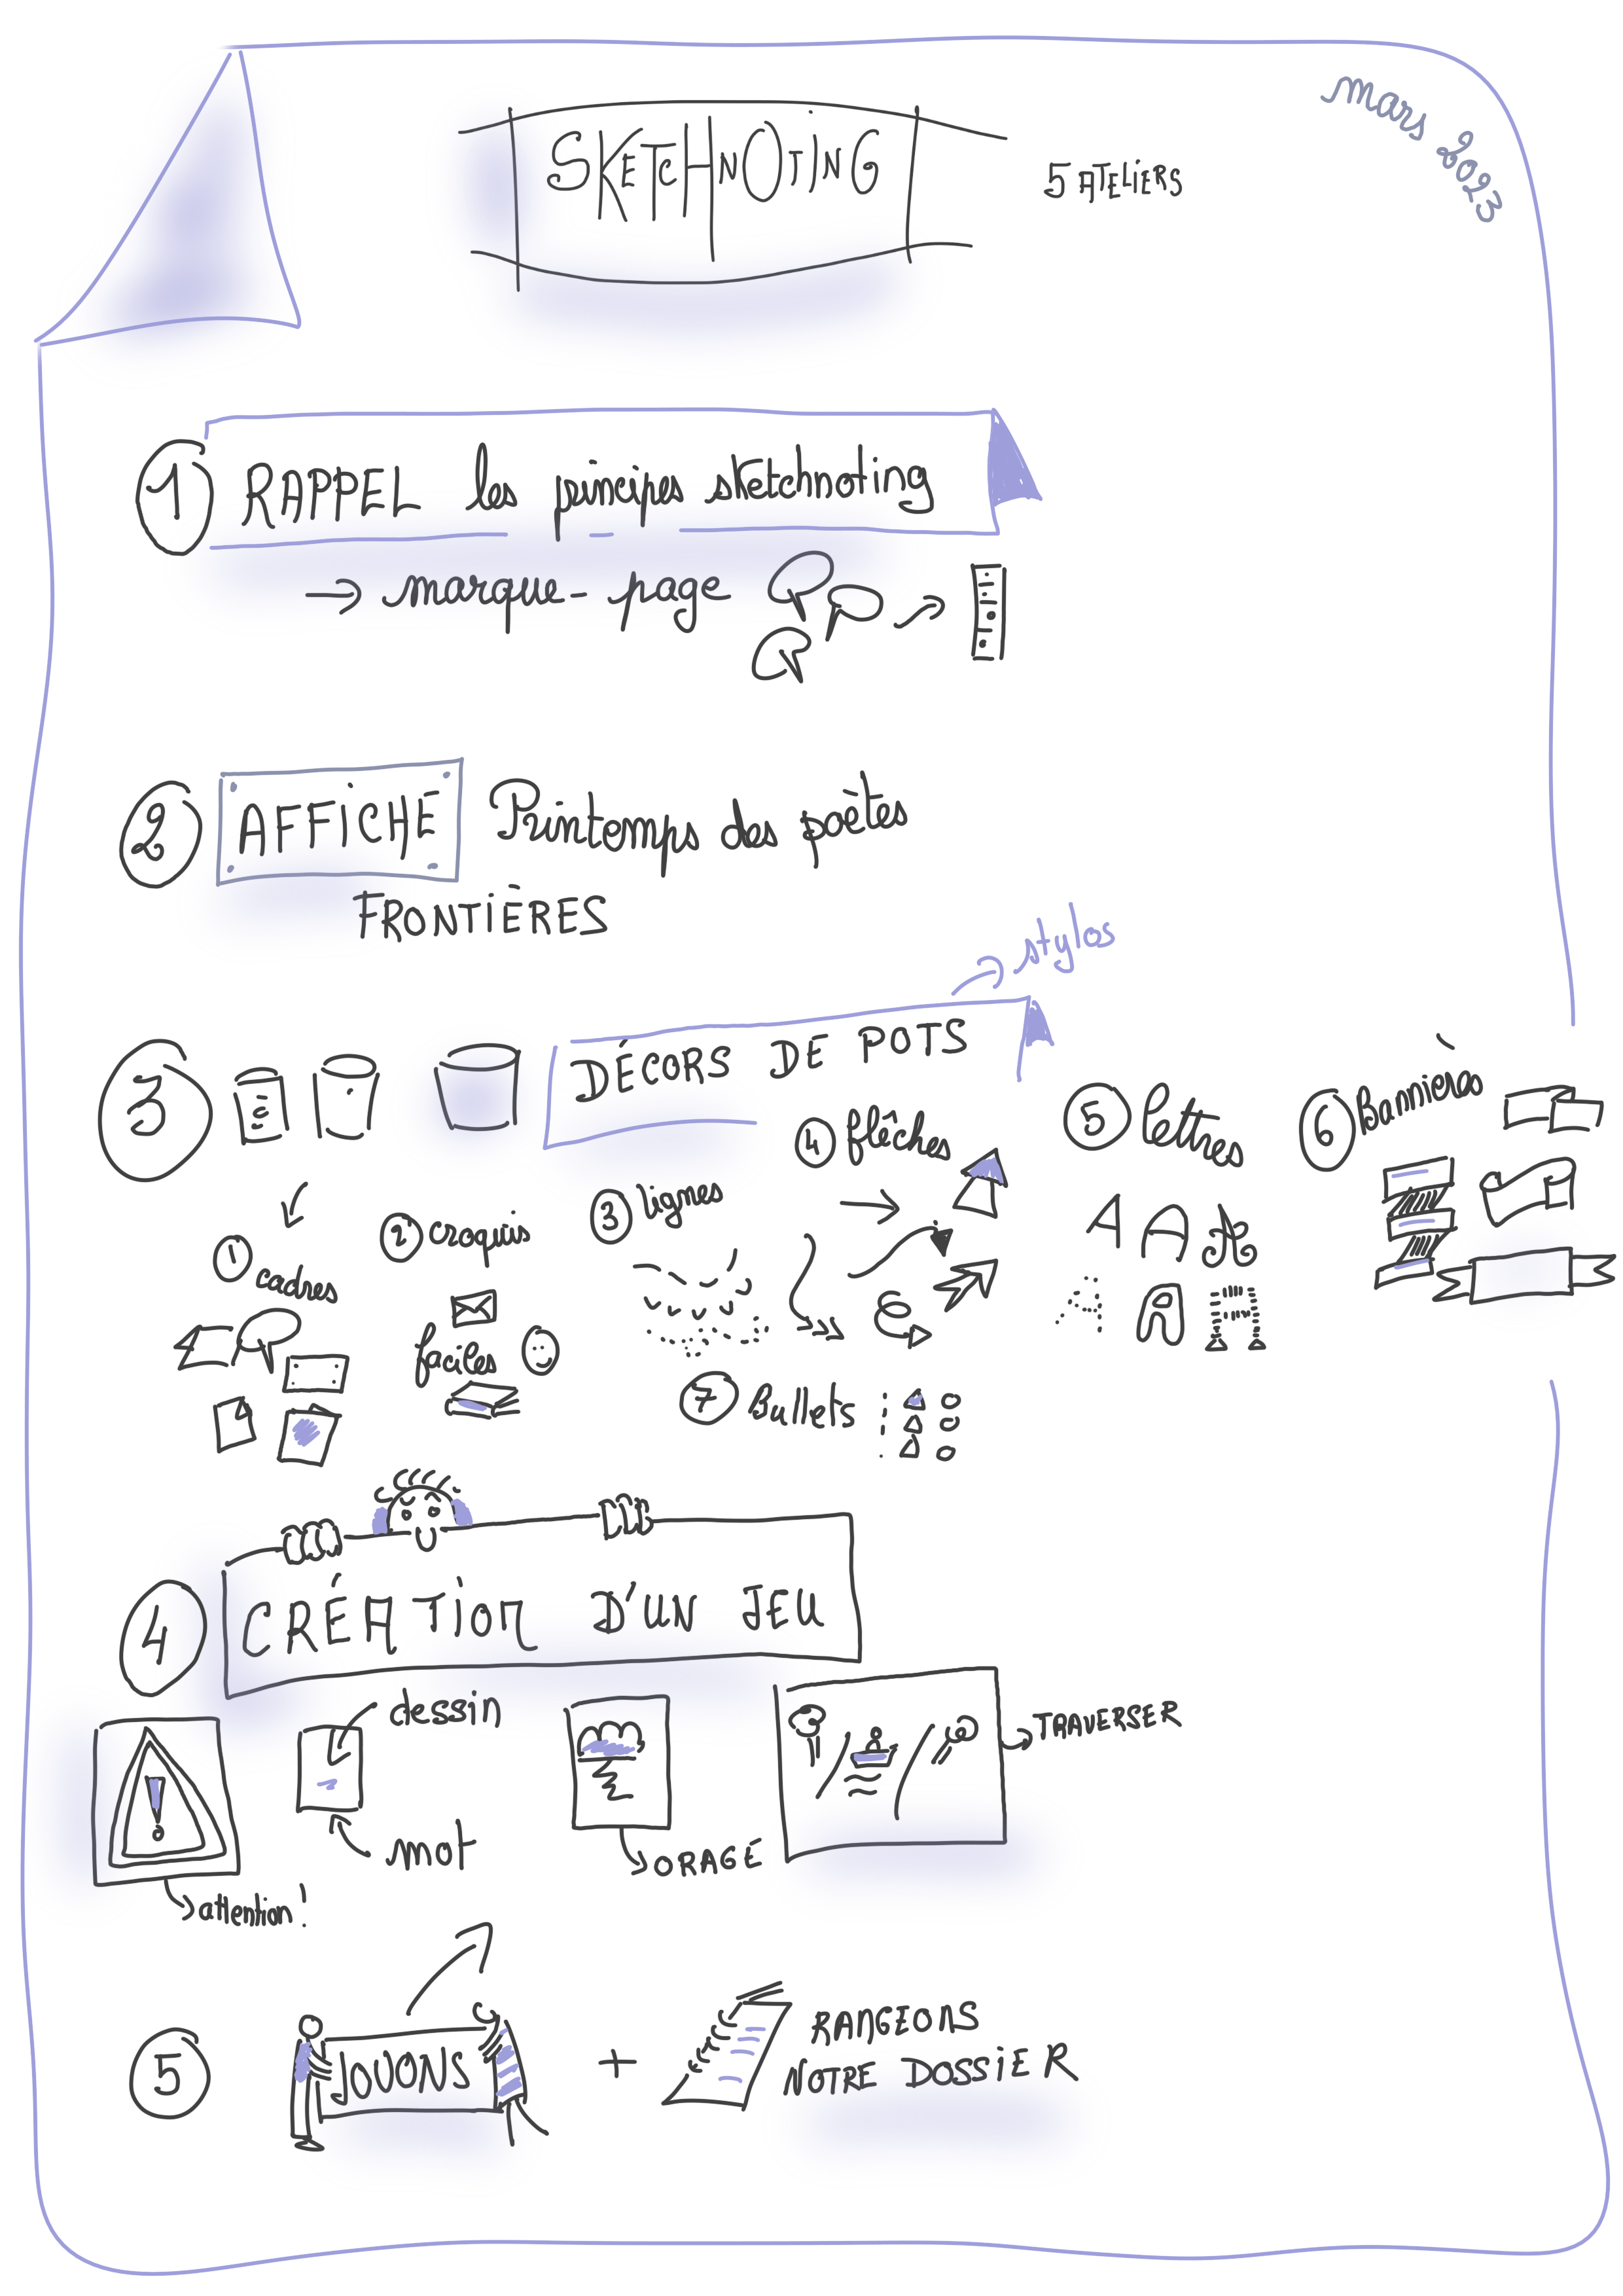 mars 2023
SKETCHNOTING
5 ATELIERS
1 RAPPEL les principes sketchnoting
→ marque-page
2 AFFICHE Printemps des poètes
FRONTIÈRES
→ stylos
3 DÉCORS DE POTS
1 cadres
2 croquis
faciles
3 lignes
4 flêches
5 lettres
A A A
A A A
6 Bannières
7 Bullets
4 CRÉATION D'UN JEU
dessin
mot
attention!
ORAGE
TRAVERSER
5 JOUONS
+ RANGEONS
NOTRE DOSSIER